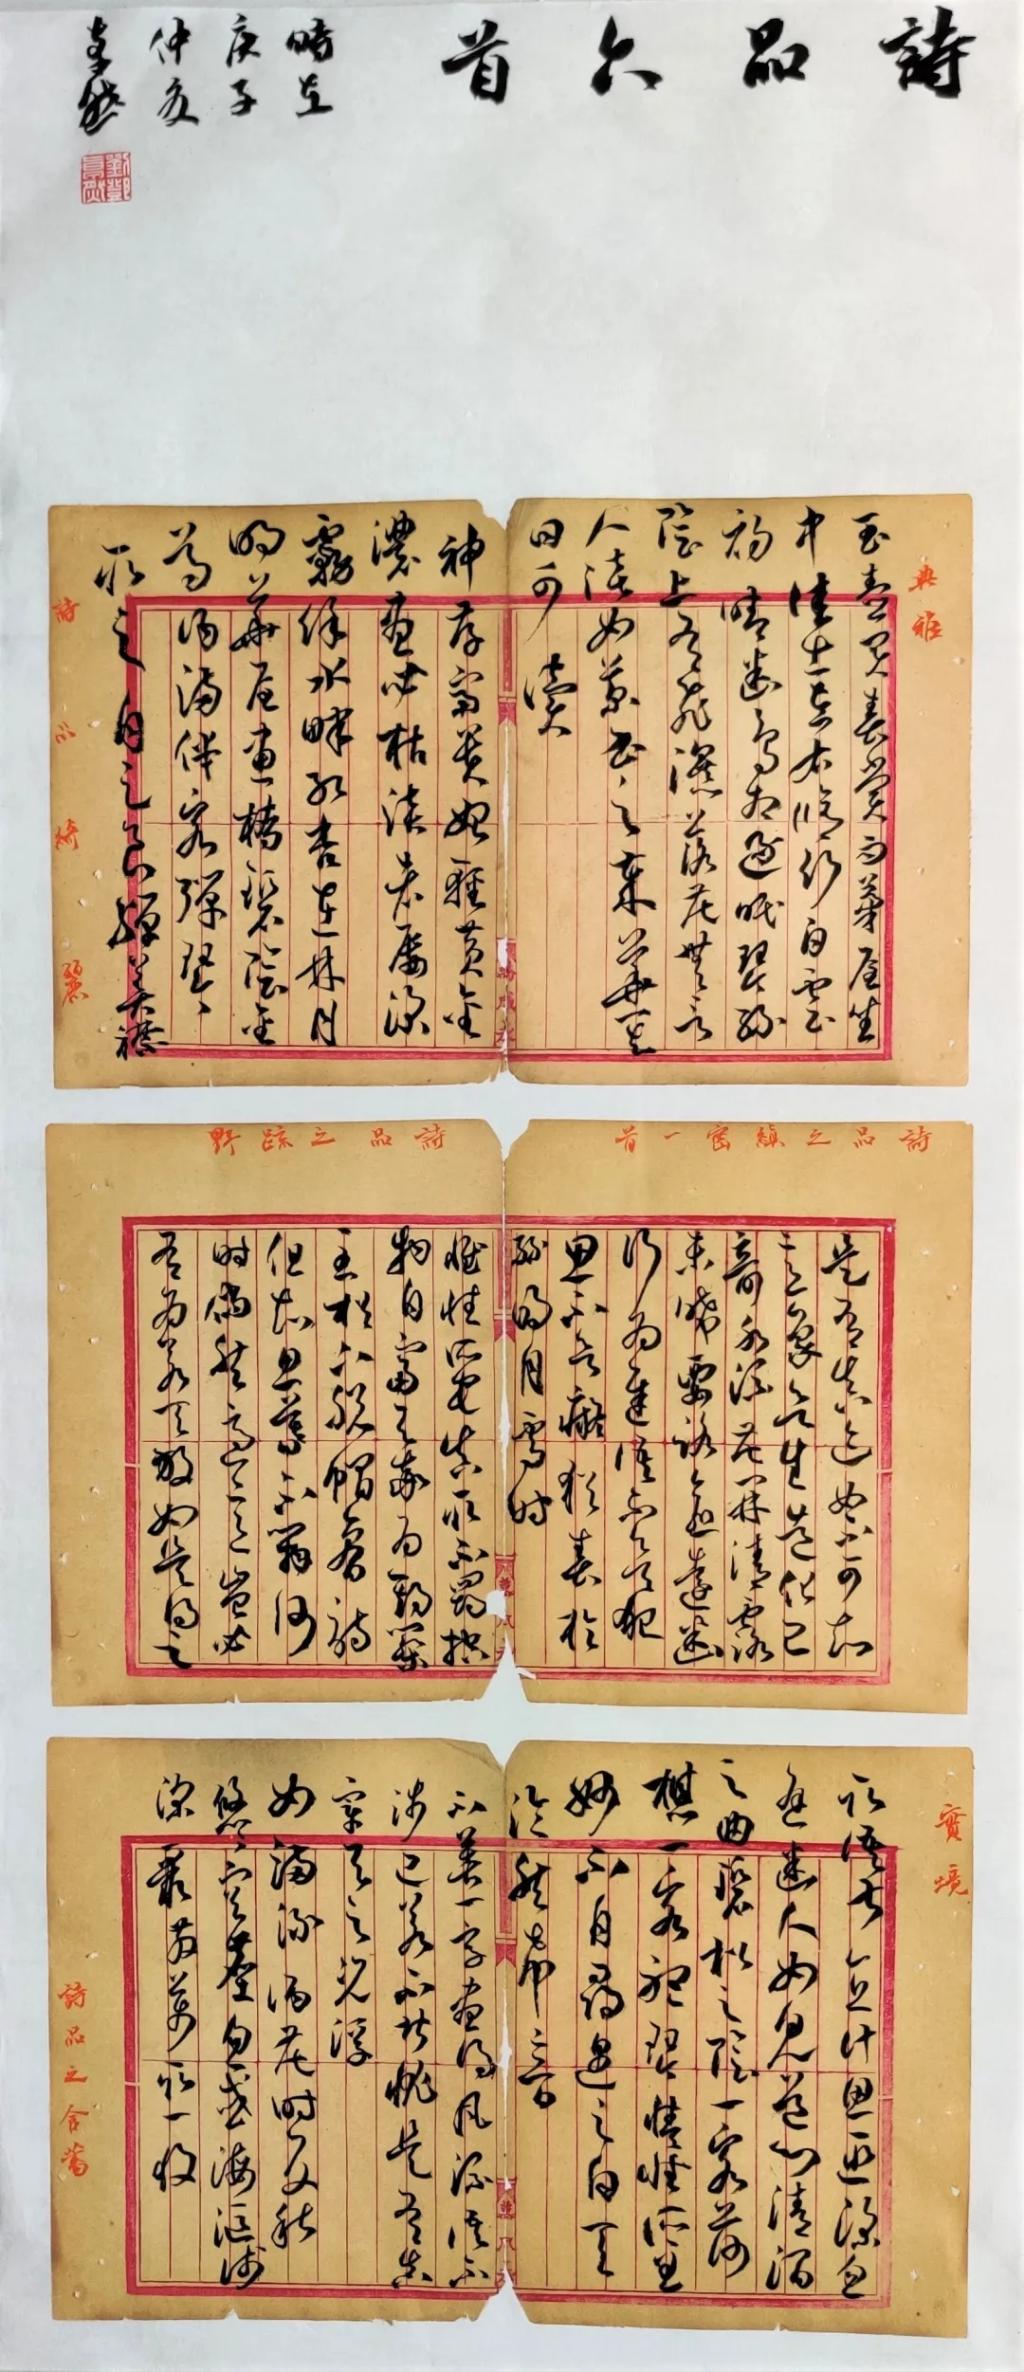 詩品六首
時在
庚子
仲夏
典雅
玉壺買春賞雨茅屋坐
中佳士左右脩竹白雲
初晴幽鳥相逐眠琴綠
陰上有飛瀑落花無言
人淡如菊書之歲華其
曰可讀
神存富貴始輕黃金
濃盡必枯淡者屢深
霧餘水畔紅杏在林月
明華屋畫橋碧陰金
尊酒滿伴客彈琴
取之自足良殫美襟
詩品綺麗
詩品之縝密一首
是有真迹如不可知
意象欲生造化已
奇水流花開清露
未晞要路愈遠幽
行為遲語不欲犯
思不欲癡猶春於
綠明月雪時
詩品之疏野
惟性所宅真取不羈控
物自富與率為期築
室松下脫帽看詩
但知旦暮不辨何
時倘然適意豈必
有為若天放如是得之
實境
取語甚直計思匪深忽
逢幽人如見道心清澗
之曲碧松之陰一客荷
樵一客聽琴情性所至
妙不自尋遇之自天
泠然希音
不著一字盡得風流語不
涉己若不堪憂是有真
宰與之沉浮
如滿淥酒花時反秋
悠悠空塵忽忽海漚淺
深聚散萬取一收
詩品之含蓄